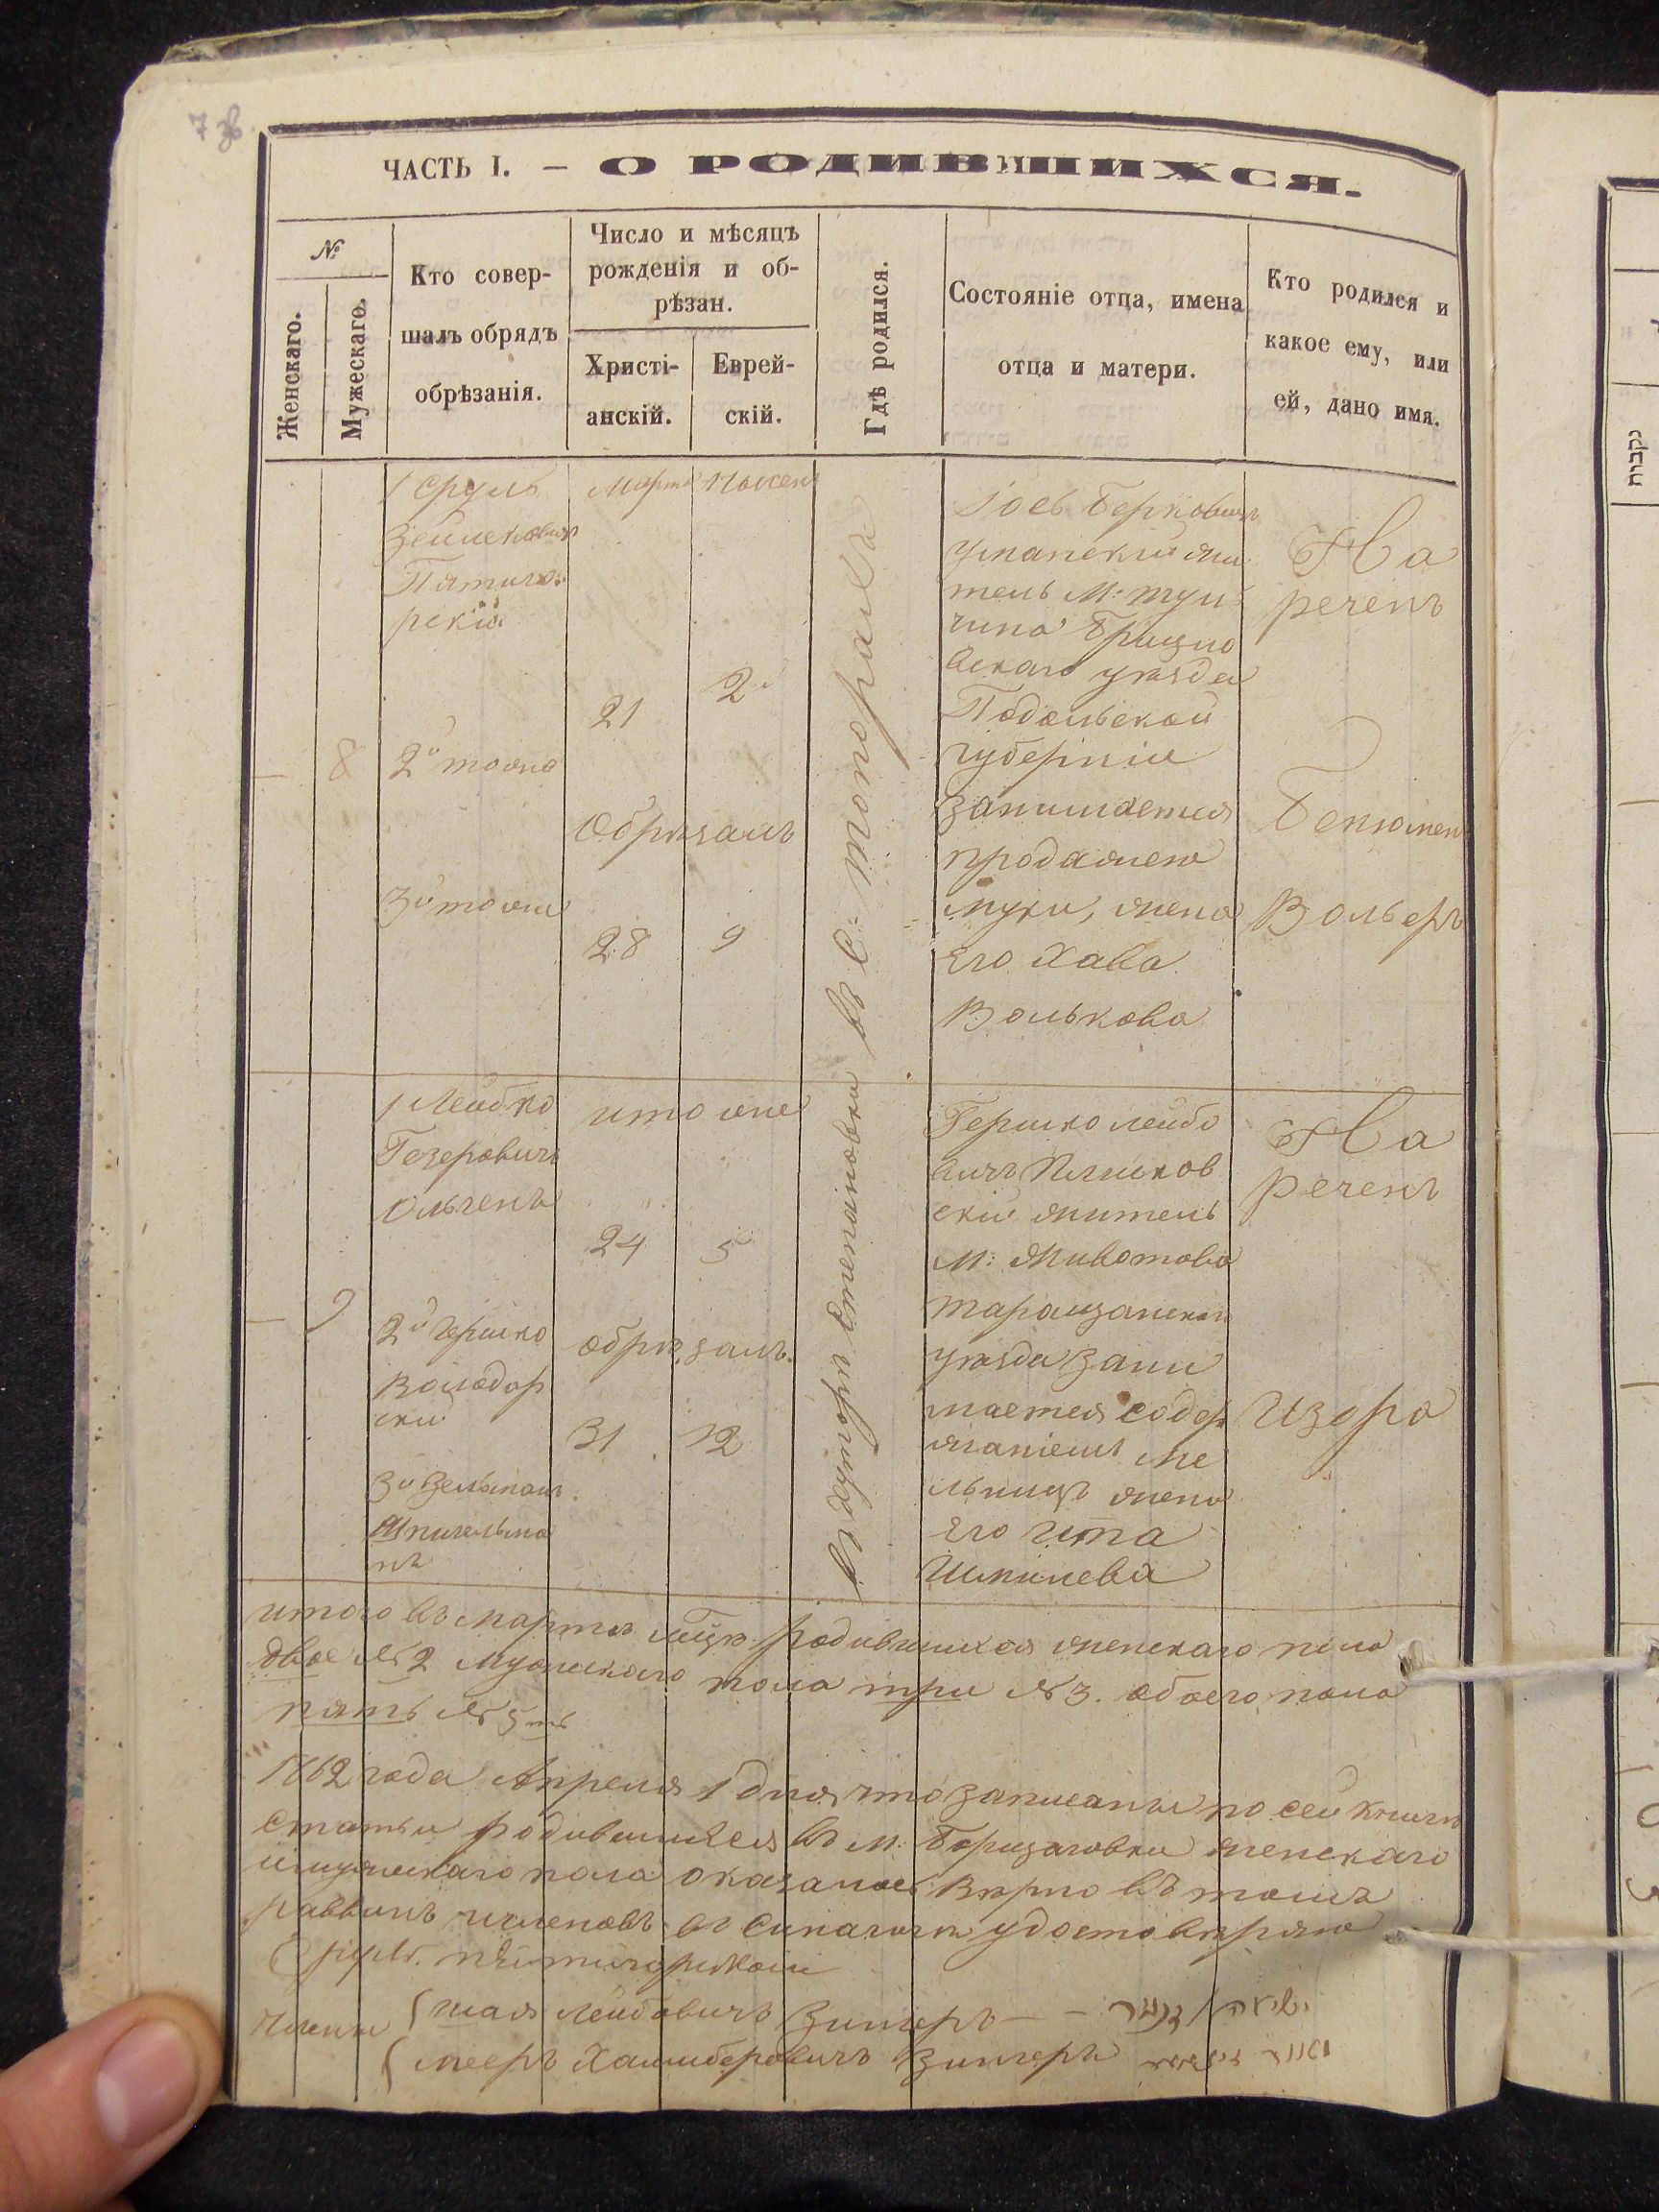 ЧАСТЬ I. — О РОДИВШИХСЯ.
№
Женскаго.
Мужескаго.
Кто совер-
шалъ обрядъ
обрѣзанія.
Число и мѣсяцъ
рожденія и об-
рѣзан.
Христі-
анскій.
Еврей-
скій.
Гдѣ родился.
Состояніе отца, имена
отца и матери.
Кто родился и
какое ему, или
ей, дано имя.
8
1 Сруль
Зейлековичъ
Пятиго-
рскій
2й тоже
3й тоже
Марта
21
Обрѣзанъ
28
2й
9
въ с: Топорахъ
Іось Берковичъ
Уманскій жи
тель М: Туль
чина Брацлав
скаго уѣзда
Подольской
губерніи
занимается
продажею
муки, жена
его Хава
Волькова
На
реченъ
Бенюмен
Вольфъ
9
1 Лейбко
Гезеровичъ
2й Гершко
Володар
скій
3й Зельманъ
Шпигельма
нъ
и тоже
24
5
обрѣзанъ
31
12
въ хуторѣ Степановки
Гершко Лейбо
вичъ Плисков
скій житель
М: Животова
Таращанскаго
уѣзда зани
мается содер
жаніемъ ме
льницъ жена
его Ита
На
реченъ
Изора
итого въ Мартѣ мцѣ родившихся женскаго пола
двое № 2 Мужескаго пола три № 3. обоего пола
пять № 5ть
1862 года Апреля 1 дня что записаны по сей книгѣ
статьи родившихся въ м: Борщаговки женскаго
и мужескаго пола оказалось Вѣрно въ томъ
раввинъ и членовъ въ Синагоги удостовѣряю
Сруль Пятигорскій
Члены
Шая Лейбовичъ Зингеръ —
Мееръ Хаимберовичъ Зингеръ